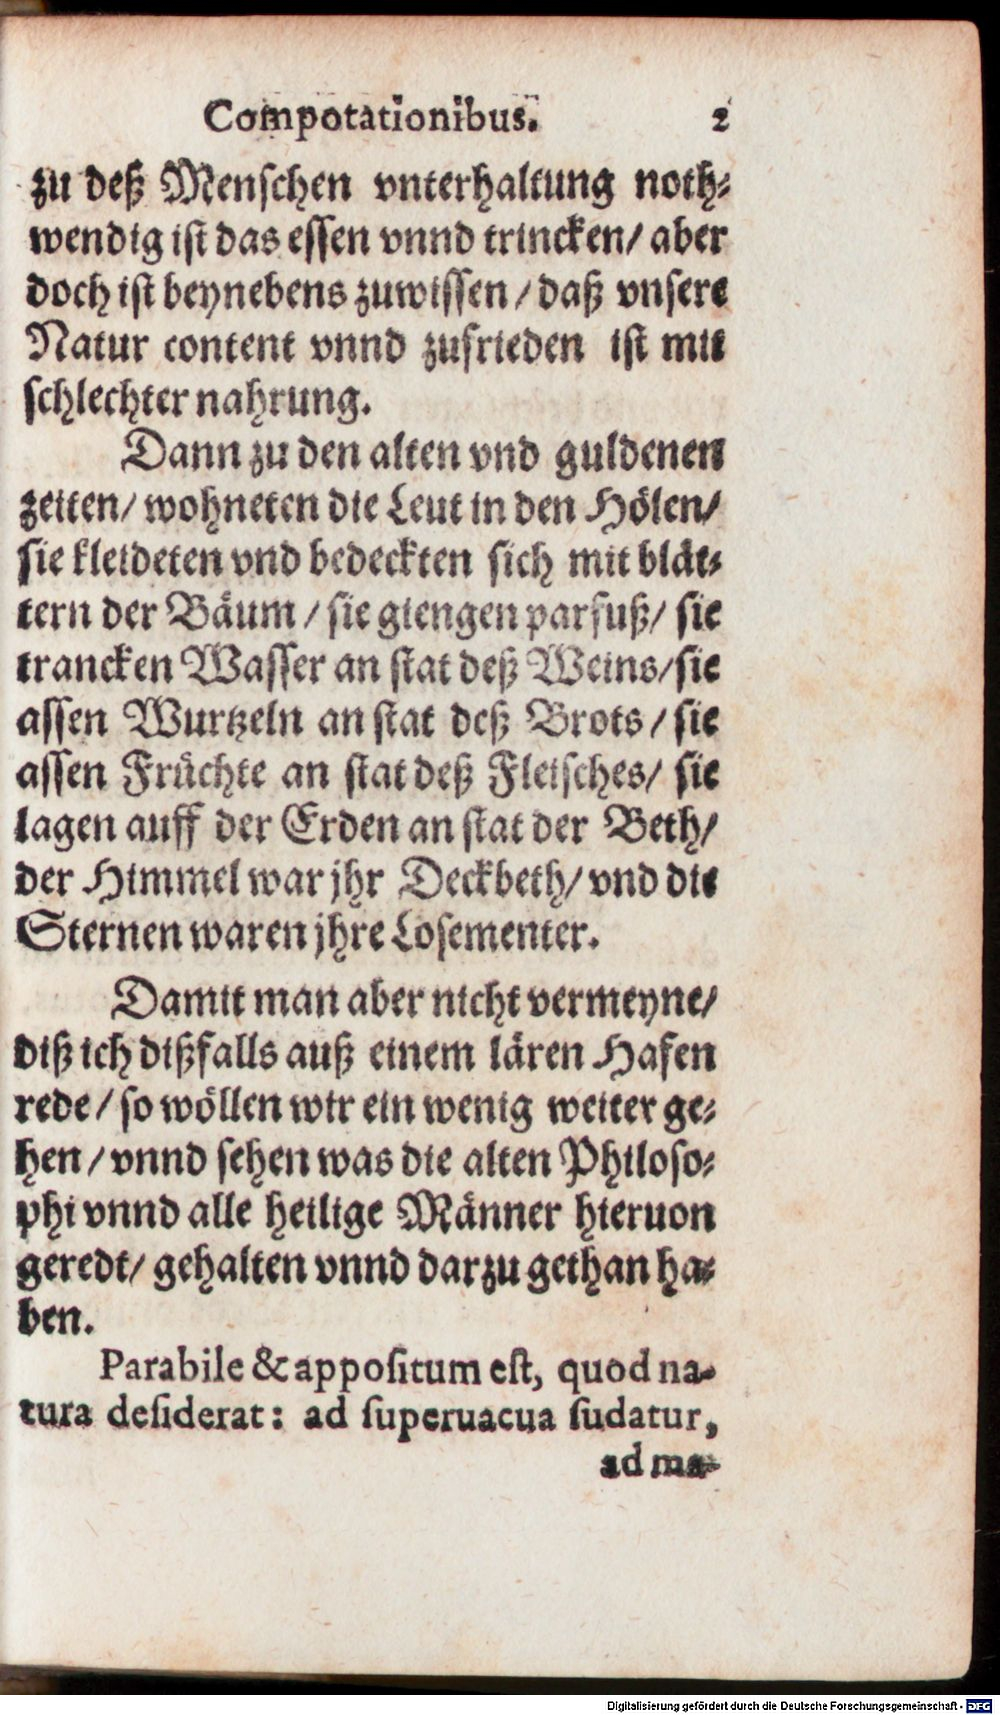 Compotationibus. 2
zu deß Menschen vnterhaltung noth-
wendig ist das essen vnnd trincken/ aber
doch ist beynebens zuwissen/ daß vnsere
Natur content vnnd zufrieden ist mit
schlechter nahrung.
Dann zu den alten vnd guldenen
zeiten/ wohneten die Leut in den Hölen/
sie kleideten vnd bedeckten sich mit blät-
tern der Bäum/ sie giengen parfuß/ sie
trancken Wasser an stat deß Weins/ sie
assen Wurtzeln an stat deß Brots/ sie
assen Früchte an stat deß Fleisches/ sie
lagen auff der Erden an stat der Beth/
der Himmel war jhr Deckbeth/ vnd die
Sternen waren jhre Losementer.
Damit man aber nicht vermeyne/
diß ich dißfalls auß einem lären Hafen
rede/ so wöllen wir ein wenig weiter ge-
hen/ vnnd sehen was die alten Philoso-
phi vnnd alle heilige Männer hieruon
geredt/ gehalten vnnd darzu gethan ha-
ben.
Parabile & appositum est, quod na-
tura desiderat: ad superuacua sudatur,
ad ma-
Digitalisierung gefördert durch die Deutsche Forschungsgemeinschaft - DFG